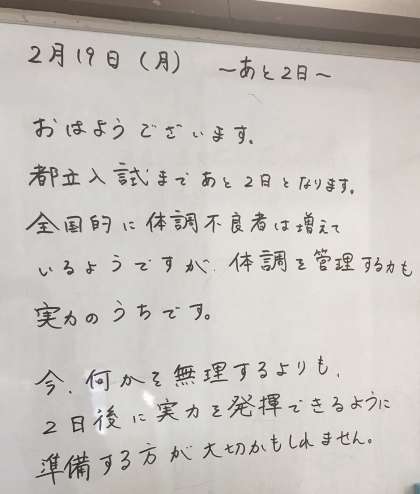 2月19日(月) ～あと2日～
おはようございます。
都立入試まであと2日となります。
全国的に体調不良者は増えて
いるようですが、体調を管理する力も
実力のうちです。
今、何かを無理するよりも、
2日後に実力を発揮できるように
準備する方が大切かもしれません。